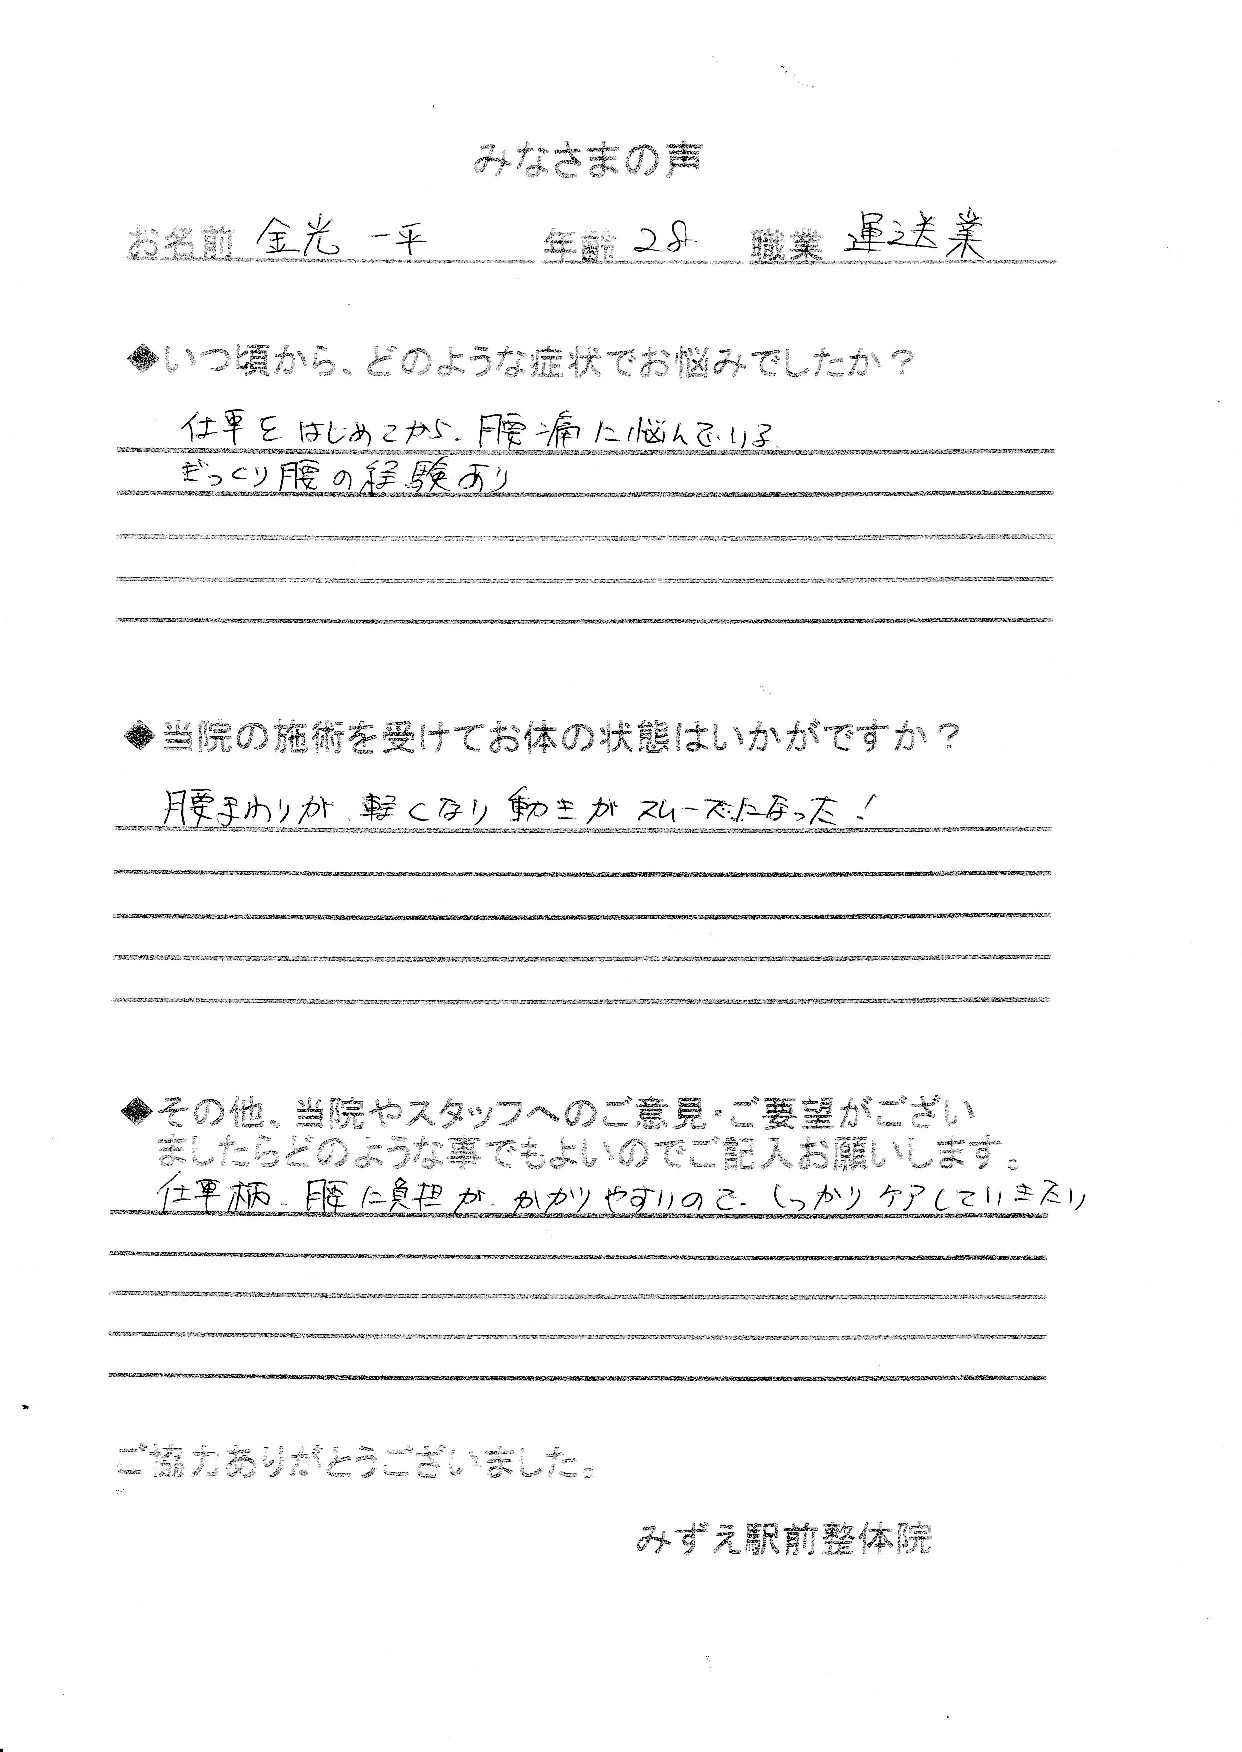 みなさまの声
お名前 金光 一平 年齢 28 職業 運送業
◆いつ頃から、どのような症状でお悩みでしたか？
仕事をはじめてから、腰痛に悩んでいる
ぎっくり腰の経験あり
◆当院の施術を受けてお体の状態はいかがですか？
腰まわりが、軽くなり動きがスムーズになった！
◆その他、当院やスタッフへのご意見・ご要望がござい
ましたらどのような事でもよいのでご記入お願いします。
仕事柄、腰に負担が、かかりやすいので、しっかりケアしていきたい
ご協力ありがとうございました。
みずえ駅前整体院